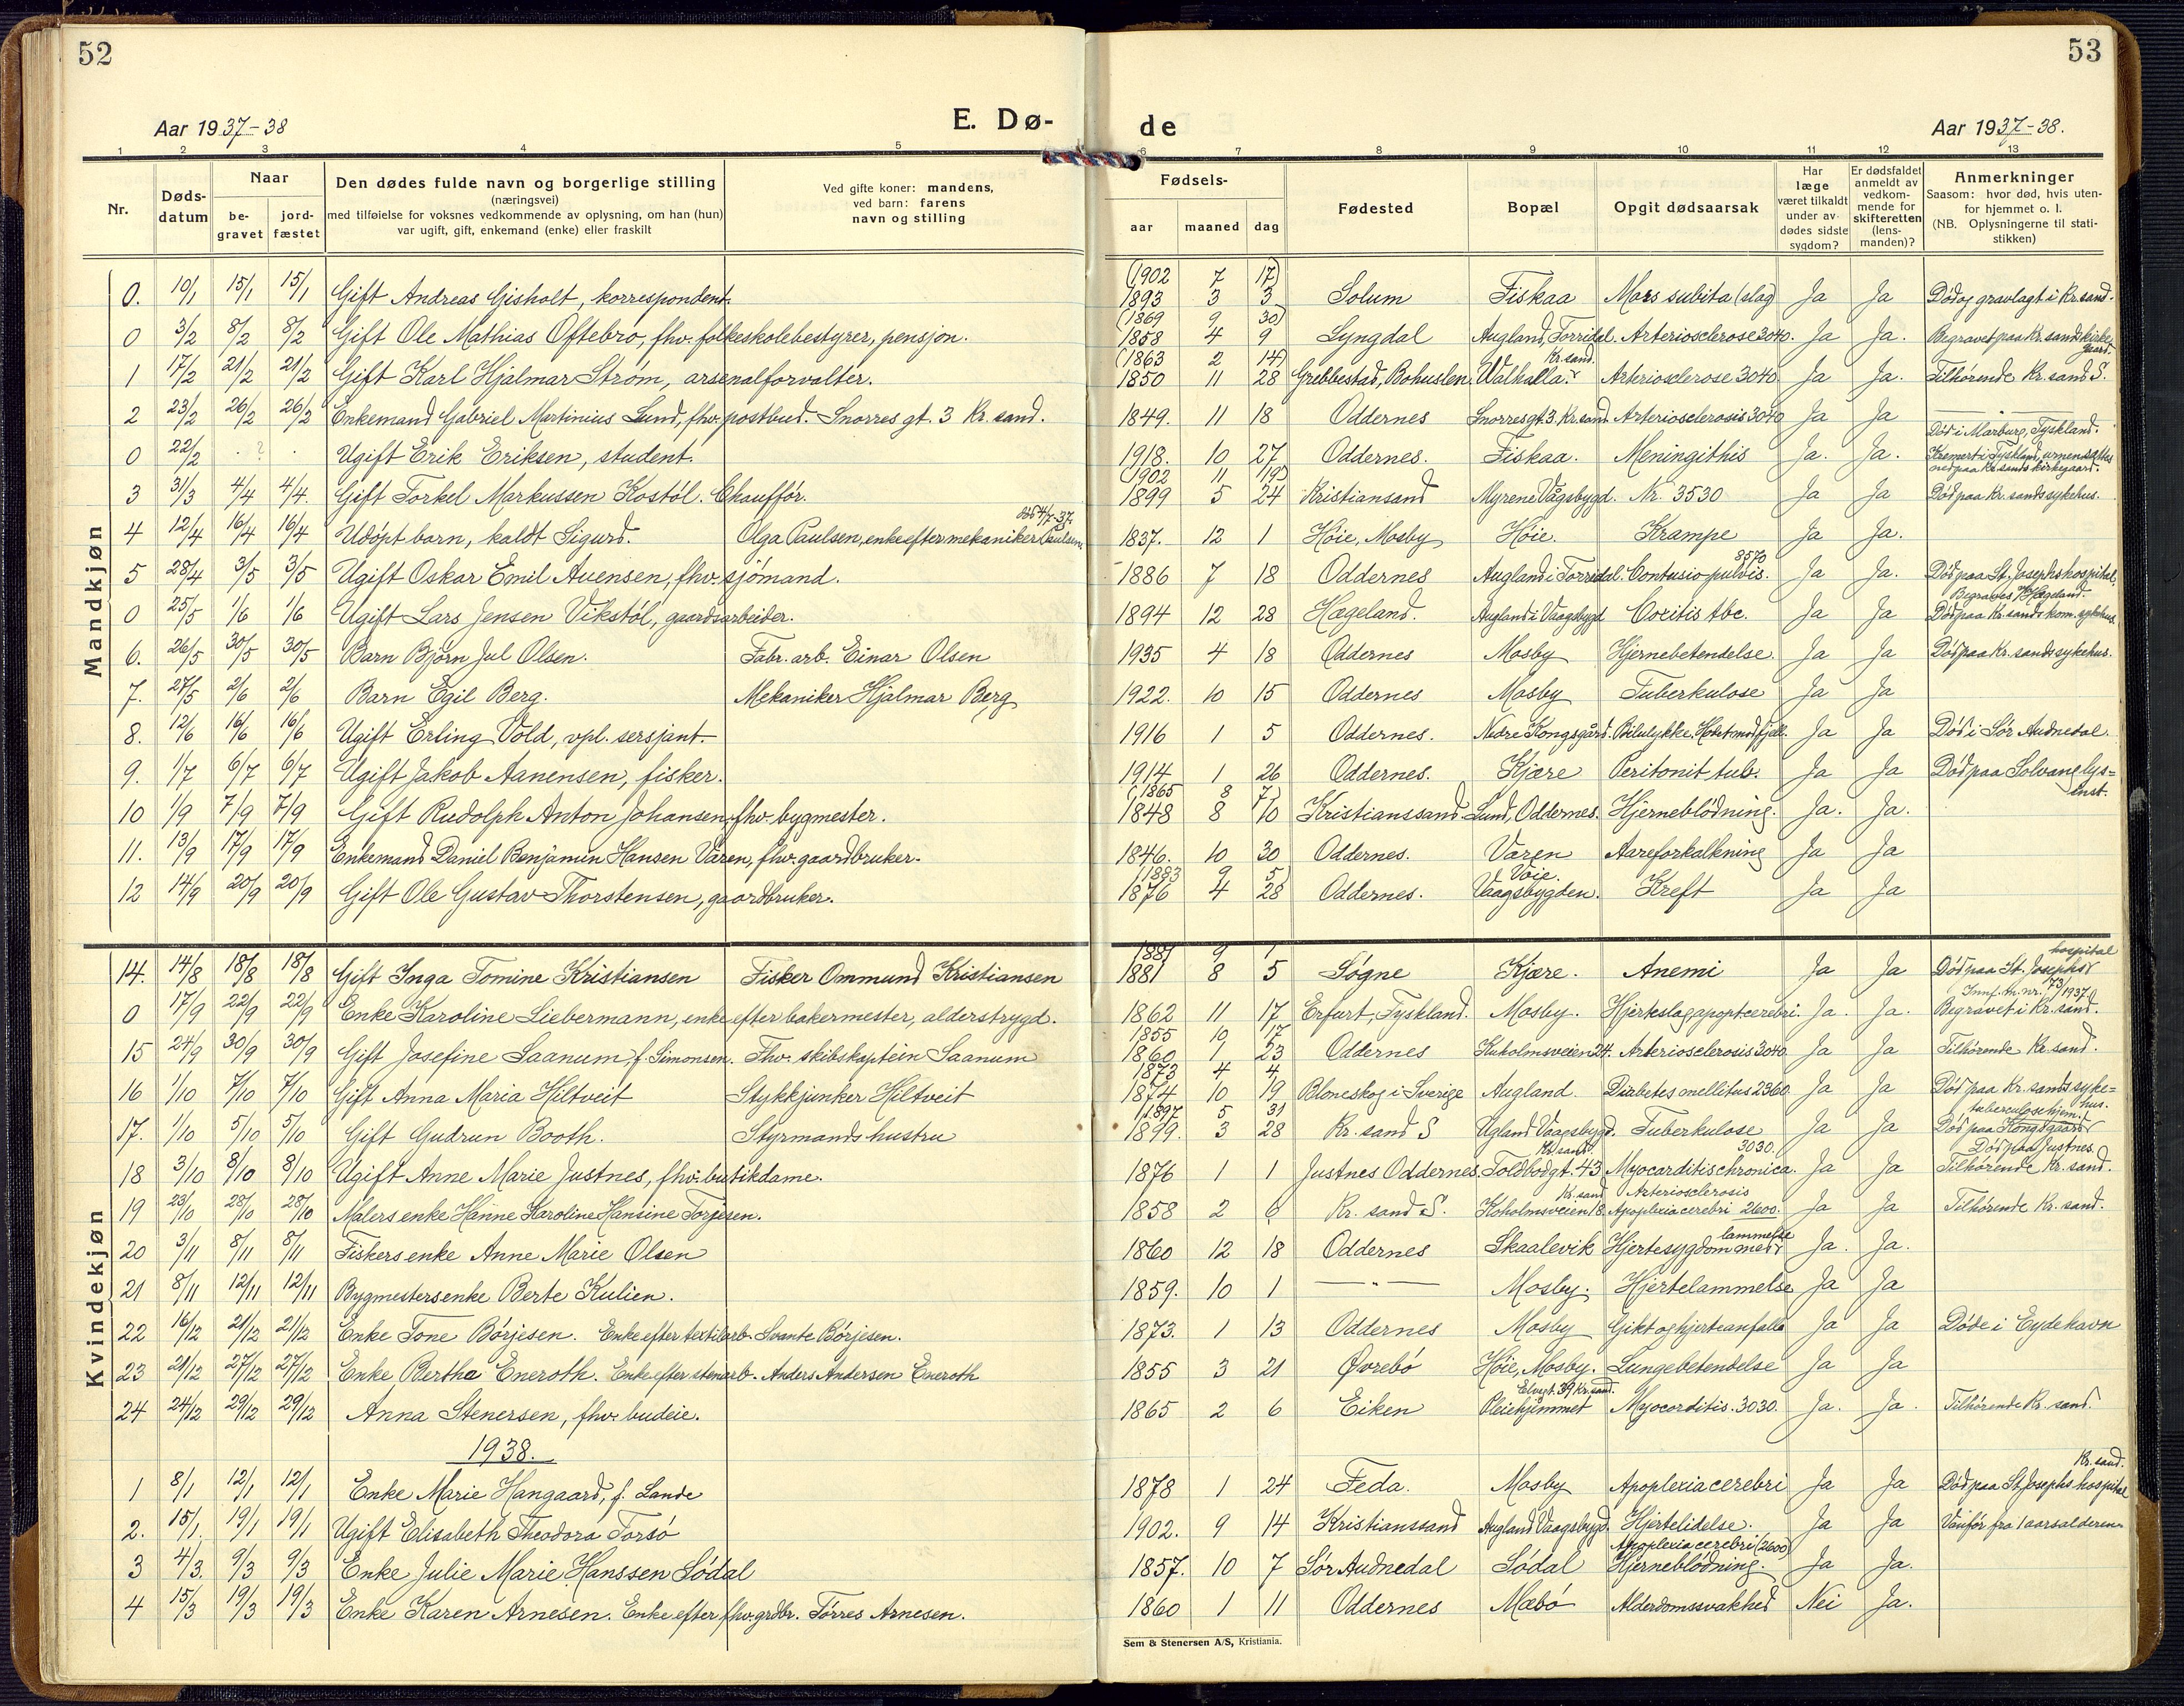 52
53
Aar 1937-38
E. Dø-
de
Aar 1937-38.
1 2 3 4 5 6 7 8 9 10 11 12 13
Nr. Døds-datum Naar be-gravet jord-fæstet
Den dødes fulde navn og borgerlige stilling
(næringsvei)
med tilføielse for voksnes vedkommende av oplysning, om han (hun)
var ugift, gift, enkemand (enke) eller fraskilt
Ved gifte koner: mandens,
ved barn: farens
navn og stilling
Fødsels- aar maaned dag
Fødested
Bopæl
Opgit dødsaarsak
Har læge været tilkaldt under av-dødes sidste sygdom?
Er dødsfaldet anmeldt av vedkom-mende for skifteretten (lens-manden)?
Anmerkninger
Saasom: hvor død, hvis uten-for hjemmet o. l.
(NB. Oplysningerne til stati-stikken)
Mandkjøn
0. 10/1 15/1 15/1 Gift Andreas Gisholt, korrespondent. (1902 7 17) 1893 3 3 Solum Fiskaa Mors subita (slag) Ja Ja Død og gravlagt i Kr.sand.
0 3/2 8/2 8/2 Gift Ole Mathias Oftebro, fhv. folkeskolebestyrer, pensjon. (1869 9 30) 1858 4 9 Lyngdal Augland, Torridal. Arteriosclerose 3040. Ja Ja. Begravet paa Kr.sands kirkegaard.
1 17/2 21/2 21/2 Gift Karl Hjalmar Strøm, arsenalforvalter. (1863 2 14) 1850 11 28 Grebbestad, Bohuslen Walhalla. Kr.sand. Arteriosclerose 3040 Ja Ja. Tilhørende Kr.sand S.
2 23/2 26/2 26/2 Enkemand Gabriel Martinius Lund, fhv. postbud. Snorres gt. 3 Kr. sand. 1849. 11 18 Oddernes Snorresgt. 3. Kr.sand. Arteriosclerosis 3040 Ja Ja — " —
0 22/2 . ? . Ugift Erik Eriksen, student. 1918. 10 27 Oddernes. Fiskaa. Meningithis Ja. Ja. Død i Marburg, Tyskland. Kremert i Tyskland, urnensattes ned paa Kr.sands kirkegaard.
3 31/3 4/4 4/4. Gift Torkel Markussen Kostøl. Chauffør. (1902 11 19) 1899 5 24 Kristiansand Myrene Vågsbygd. Nr. 3530 Ja Ja Død paa Kr. sands sykehus.
4 12/4 16/4 16/4 Udøpt barn, kaldt Sigurd. Olga Paulsen, enke efter mekaniker Paulsen 1837. 12 1 Høie, Mosby Høie. Krampe Ja Ja.
5 28/4 3/5 3/5 Ugift Oskar Emil Auensen, fhv. sjømand. 1886 7 18 Oddernes Augland i Torridal. Contusio pulvis. Ja Ja. Død paa St. Josephs hospital.
0 25/5 1/6 1/6 Ugift Lars Jensen Vikstøl, gaardsarbeider. 1894 12 28 Hægeland. Augland i Vaagsbygd Coxitis tbc. Ja Ja Begraves i Hægeland. Død paa Kr.sands kom.sykehus
6. 26/5 30/5 30/5 Barn Bjørn Jul Olsen. Fabr. arb. Einar Olsen 1935 4 18 Oddernes Mosby Hjernebetendelse. Ja Ja Død paa Kr. sands sykehus.
7. 27/5 2/6 2/6 Barn Egil Berg. Mekaniker Hjalmar Berg 1922. 10 15 Oddernes Mosby Tuberkulose Ja Ja
8. 12/6 16/6 16/6 Ugift Erling Vold, vpl. sersjant. 1916 1 5 Oddernes. Nedre Kongsgård. Bilulykke. Ja Ja Død i Sør Audnedal.
9. 1/7 6/7 6/7 Ugift Jakob Aanensen, fisker. 1914 1 26 Oddernes. Kjære Peritonit tub. Ja Ja Død paa Solvang lys=inst.
10 1/9 7/9 7/9 Gift Rudolph Anton Johansen, fhv. bygmester. (1865 8 7) 1848 8 10 Kristianssand Lund, Oddernes. Hjerneblødning. Ja. Ja.
11. 13/9 17/9 17/9 Enkemand Daniel Benjamin Hansen Varen, fhv. gaardbruker. 1846. 10 30 Oddernes. Varen Aareforkalkning Ja Ja
12 14/9 20/9 20/9 Gift Ole Gustav Thorstensen, gaardbruker. (1883 9 5) 1876 4 28 Oddernes. Voie. Vaagsbygden. Kreft Ja Ja
Kvindekjøn
14. 14/8 18/8 18/8 Gift Inga Tomine Kristiansen Fisker Ommund Kristiansen 1881 9 1 1881 8 5 Søgne Kjære. Anemi Ja Ja Død paa St. Josephs hospital
0 17/9 22/9 22/9 Enke Karoline Liebermann, enke efter bakermester, alderstrygd. 1862 11 17 Erfurt, Tyskland. Mosby. Hjerteslag apoptcerebri. Ja. Ja. Innf. m. nr. 73/1937 Begravet i Kr. sand.
15 24/9 30/9 30/9 Gift Josefine Saanum f. Simonsen. Fhv. skibskaptein Saanum 1855 10 17 1860 1 23 Oddernes Kuholmsveien 24. Arteriosclerosis 3040 Ja Ja Tilhørende Kr. sand.
16 1/10 7/10 7/10 Gift Anna Maria Hiltveit Stykkjunker Hiltveit 1873 4 4 1874 10 19 Bloneskog i Sverige Augland. Diabetes mellitus 2360 Ja Ja Død paa Kr. sands syke=hus.
17. 1/10 5/10 5/10 Gift Gudrun Booth. Styrmands hustru (1897 5 31 1899. 3 28 Kr. sand S Ugland Vaagsbygd. Tuberkulose Ja Ja Død paa Kongsgaard tuberculosehjem.
18 3/10 8/10 8/10 Ugift Anne Marie Justnes, fhv. butikdame. 1876 1 1 Justnes Oddernes. Kr.sand. Toldbodgt. 43 Myocarditis chronica. 3030. Ja Ja Død paa Justnes. Tilhørende Kr. sand.
19 23/10 28/10 28/10 Malers enke Hanne Karoline Hansine Torjesen. 1858 2 6 Kr. sand S. Kr.sand Koholmsveien 18. Arteriosclerosis Apoplexia cerebri 2600. Ja Ja Tilhørende Kr. sand.
20 3/11 8/11 8/11 Fiskers enke Anne Marie Olsen 1860 12 18 Oddernes Skaalevik Hjertesygdom med lammelse Ja. Ja.
21 8/11 12/11 12/11 Bygmesters enke Berte Kulien. 1859. 10 1 — " — Mosby. Hjertelammelse Ja Ja
22 16/12 21/12 21/12 Enke Tone Børjesen. Enke efter textilarb. Svante Børjesen. 1873. 1 13 Oddernes Mosby Gikt og hjerteanfall Ja Ja Døde i Eydehavn
23 21/12 27/12 27/12 Enke Bertha Eneroth. Enke efter stenarb. Anders Andersen Eneroth 1855 3 21 Øvrebø Høie, Mosby. Lungebetendelse Ja Ja
24 24/12 29/12 29/12 Anna Stenersen, fhv. budeie. 1865 2 6 Eiken Elvegt. 39 Kr.sand. Pleiehjemmet Myocarditis. 3030. Ja. Ja. Tilhørende Kr. sand.
1938.
1 8/1 12/1 12/1 Enke Marie Hangaard, f. Lande 1878 1 24 Feda. Mosby Apoplexia cerebri Ja Ja Død paa St. Josephs hospital Kr. sand.
2. 15/1. 19/1 19/1 Ugift Elisabeth Theodora Torsø 1902. 9 14 Kristianssand Augland Vaagsbygd. Hjertelidelse. Ja Ja Vanfør fra 1 aarsalderen
3 4/3. 9/3 9/3 Enke Julie Marie Hanssen Sødal 1857. 10 7 Sør Audnedal Sødal Apoplexia cerebri (2600) Hjerneblødning. Ja Ja.
4 15/3 19/3 19/3 Enke Karen Arnesen. Enke efter fhv. grdbr. Tørres Arnesen. 1860 1 11 Oddernes Mæbø Alderdomssvakhed Nei Ja.
Sem & Stenersen A/S, Kristiania.